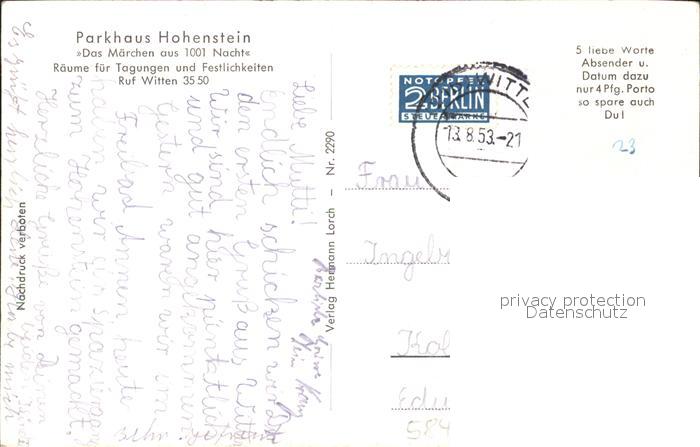 Parkhaus Hohenstein
»Das Märchen aus 1001 Nacht«
Räume für Tagungen und Festlichkeiten
Ruf Witten 3550
5 liebe Worte
Absender u.
Datum dazu
nur 4 Pfg. Porto
so spare auch
Du!
23
NOTOPFER
2 BERLIN
STEUERMARKE
WITTE
13.8.53.-21
Liebe Mutti!
Endlich schicken wir dir
den ersten Gruß aus Witten
Wir sind hier pünktlich
und gut angekommen.
Gestern waren wir im
Freibad Annen, heute
haben wir einen Spaziergang
zum Hohenstein gemacht.
Herzliche Grüße von Deinen
Es grüßt
Nachdruck verboten
Verlag Hermann Lorch – Nr. 2290
Frau
Ingeb
Kol
Edu
584
privacy protection
Datenschutz